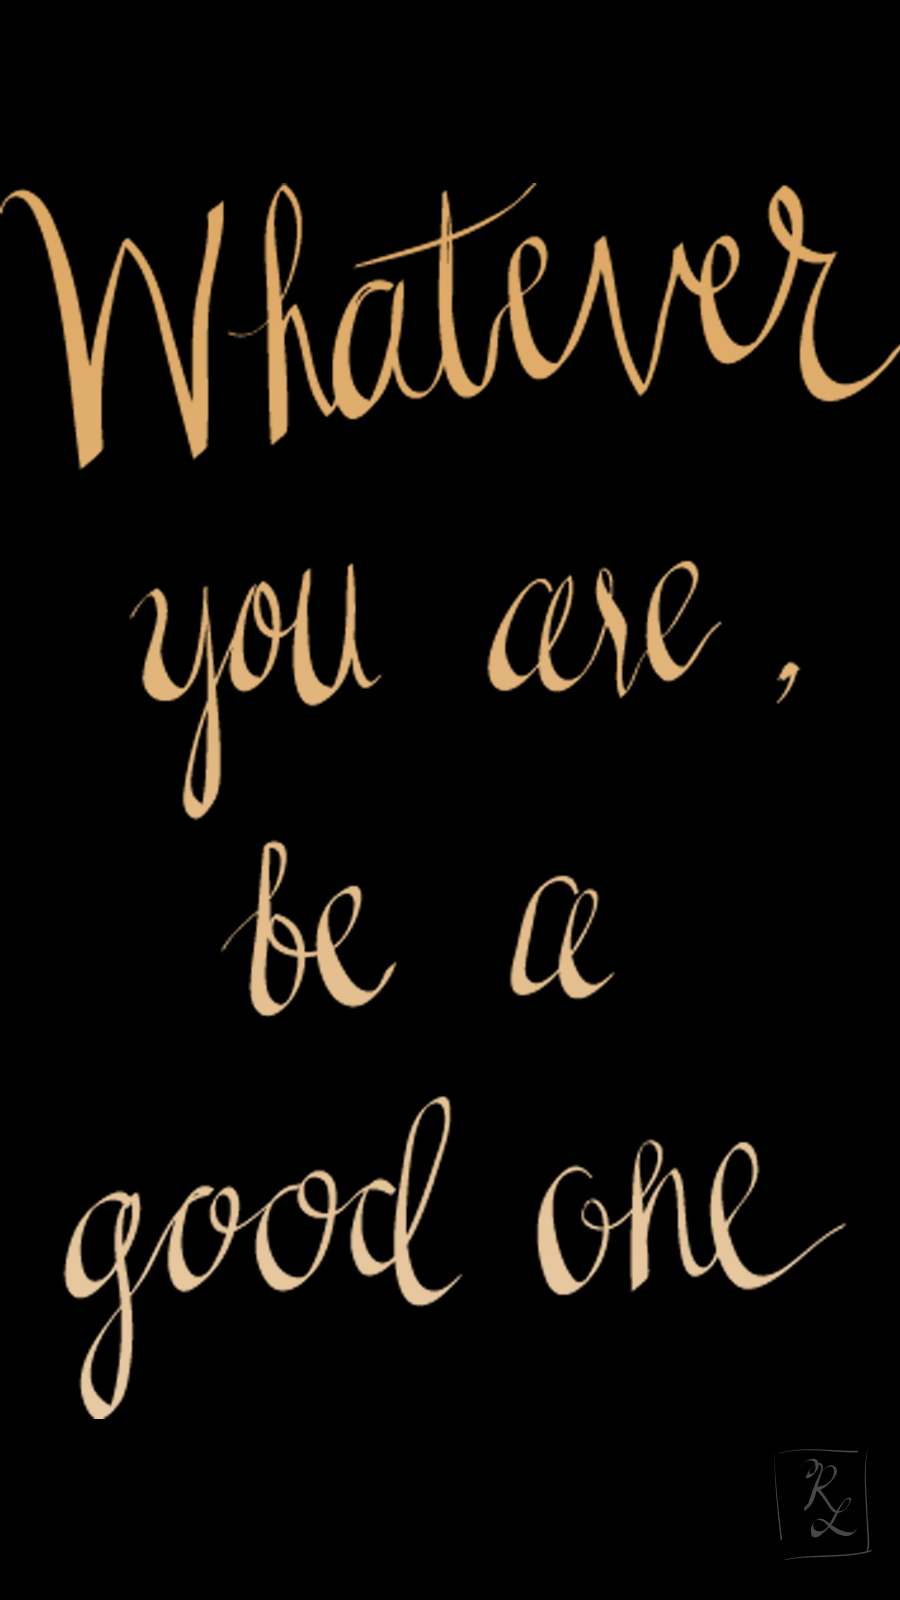 Whatever
you are ,
be a
good one
RL